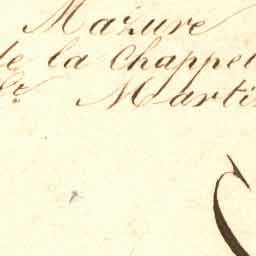 Mazure
de la Chappel
Martin